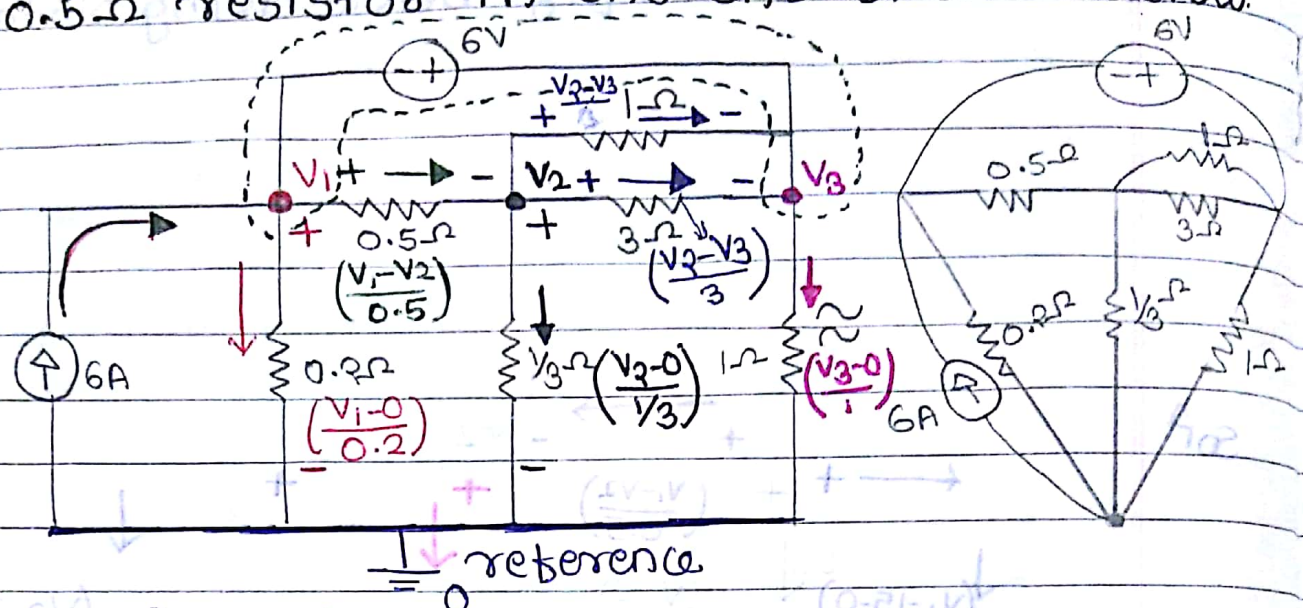 0.5Ω resistor
6V
V2-V3 1Ω
+ -
V1 + - V2 + - V3
+ 0.5Ω + 3Ω
(V1-V2 / 0.5) (V2-V3 / 3)
6A 0.2Ω 1/3Ω (V2-0 / 1/3) 1Ω (V3-0 / 1)
(V1-0 / 0.2)
- -
reference
0
6V
- +
0.5Ω 1Ω
3Ω
0.2Ω 1/3Ω 1Ω
6A